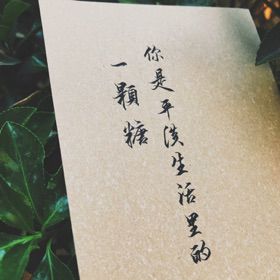 你是平淡生活里的
一顆糖